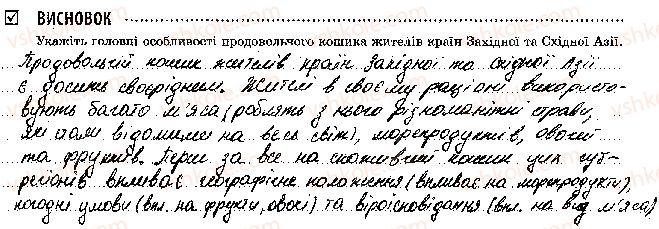 ВИСНОВОК
Укажіть головні особливості продовольчого кошика жителів країн Західної та Східної Азії.
Продовольчий кошик жителів країн Західної та Східної Азії
є досить своєрідним. Жителі в своєму раціоні використо-
вують багато м'яса (роблять з нього різноманітні страви,
які стали відомими на весь світ), морепродуктів, овочів
та фруктів. Перш за все на споживчий кошик цих суб-
регіонів впливає географічне положення (впливає на морепродукти),
погодні умови (впл. на фрукти, овочі) та віросповідання (впл. на вид м'яса)